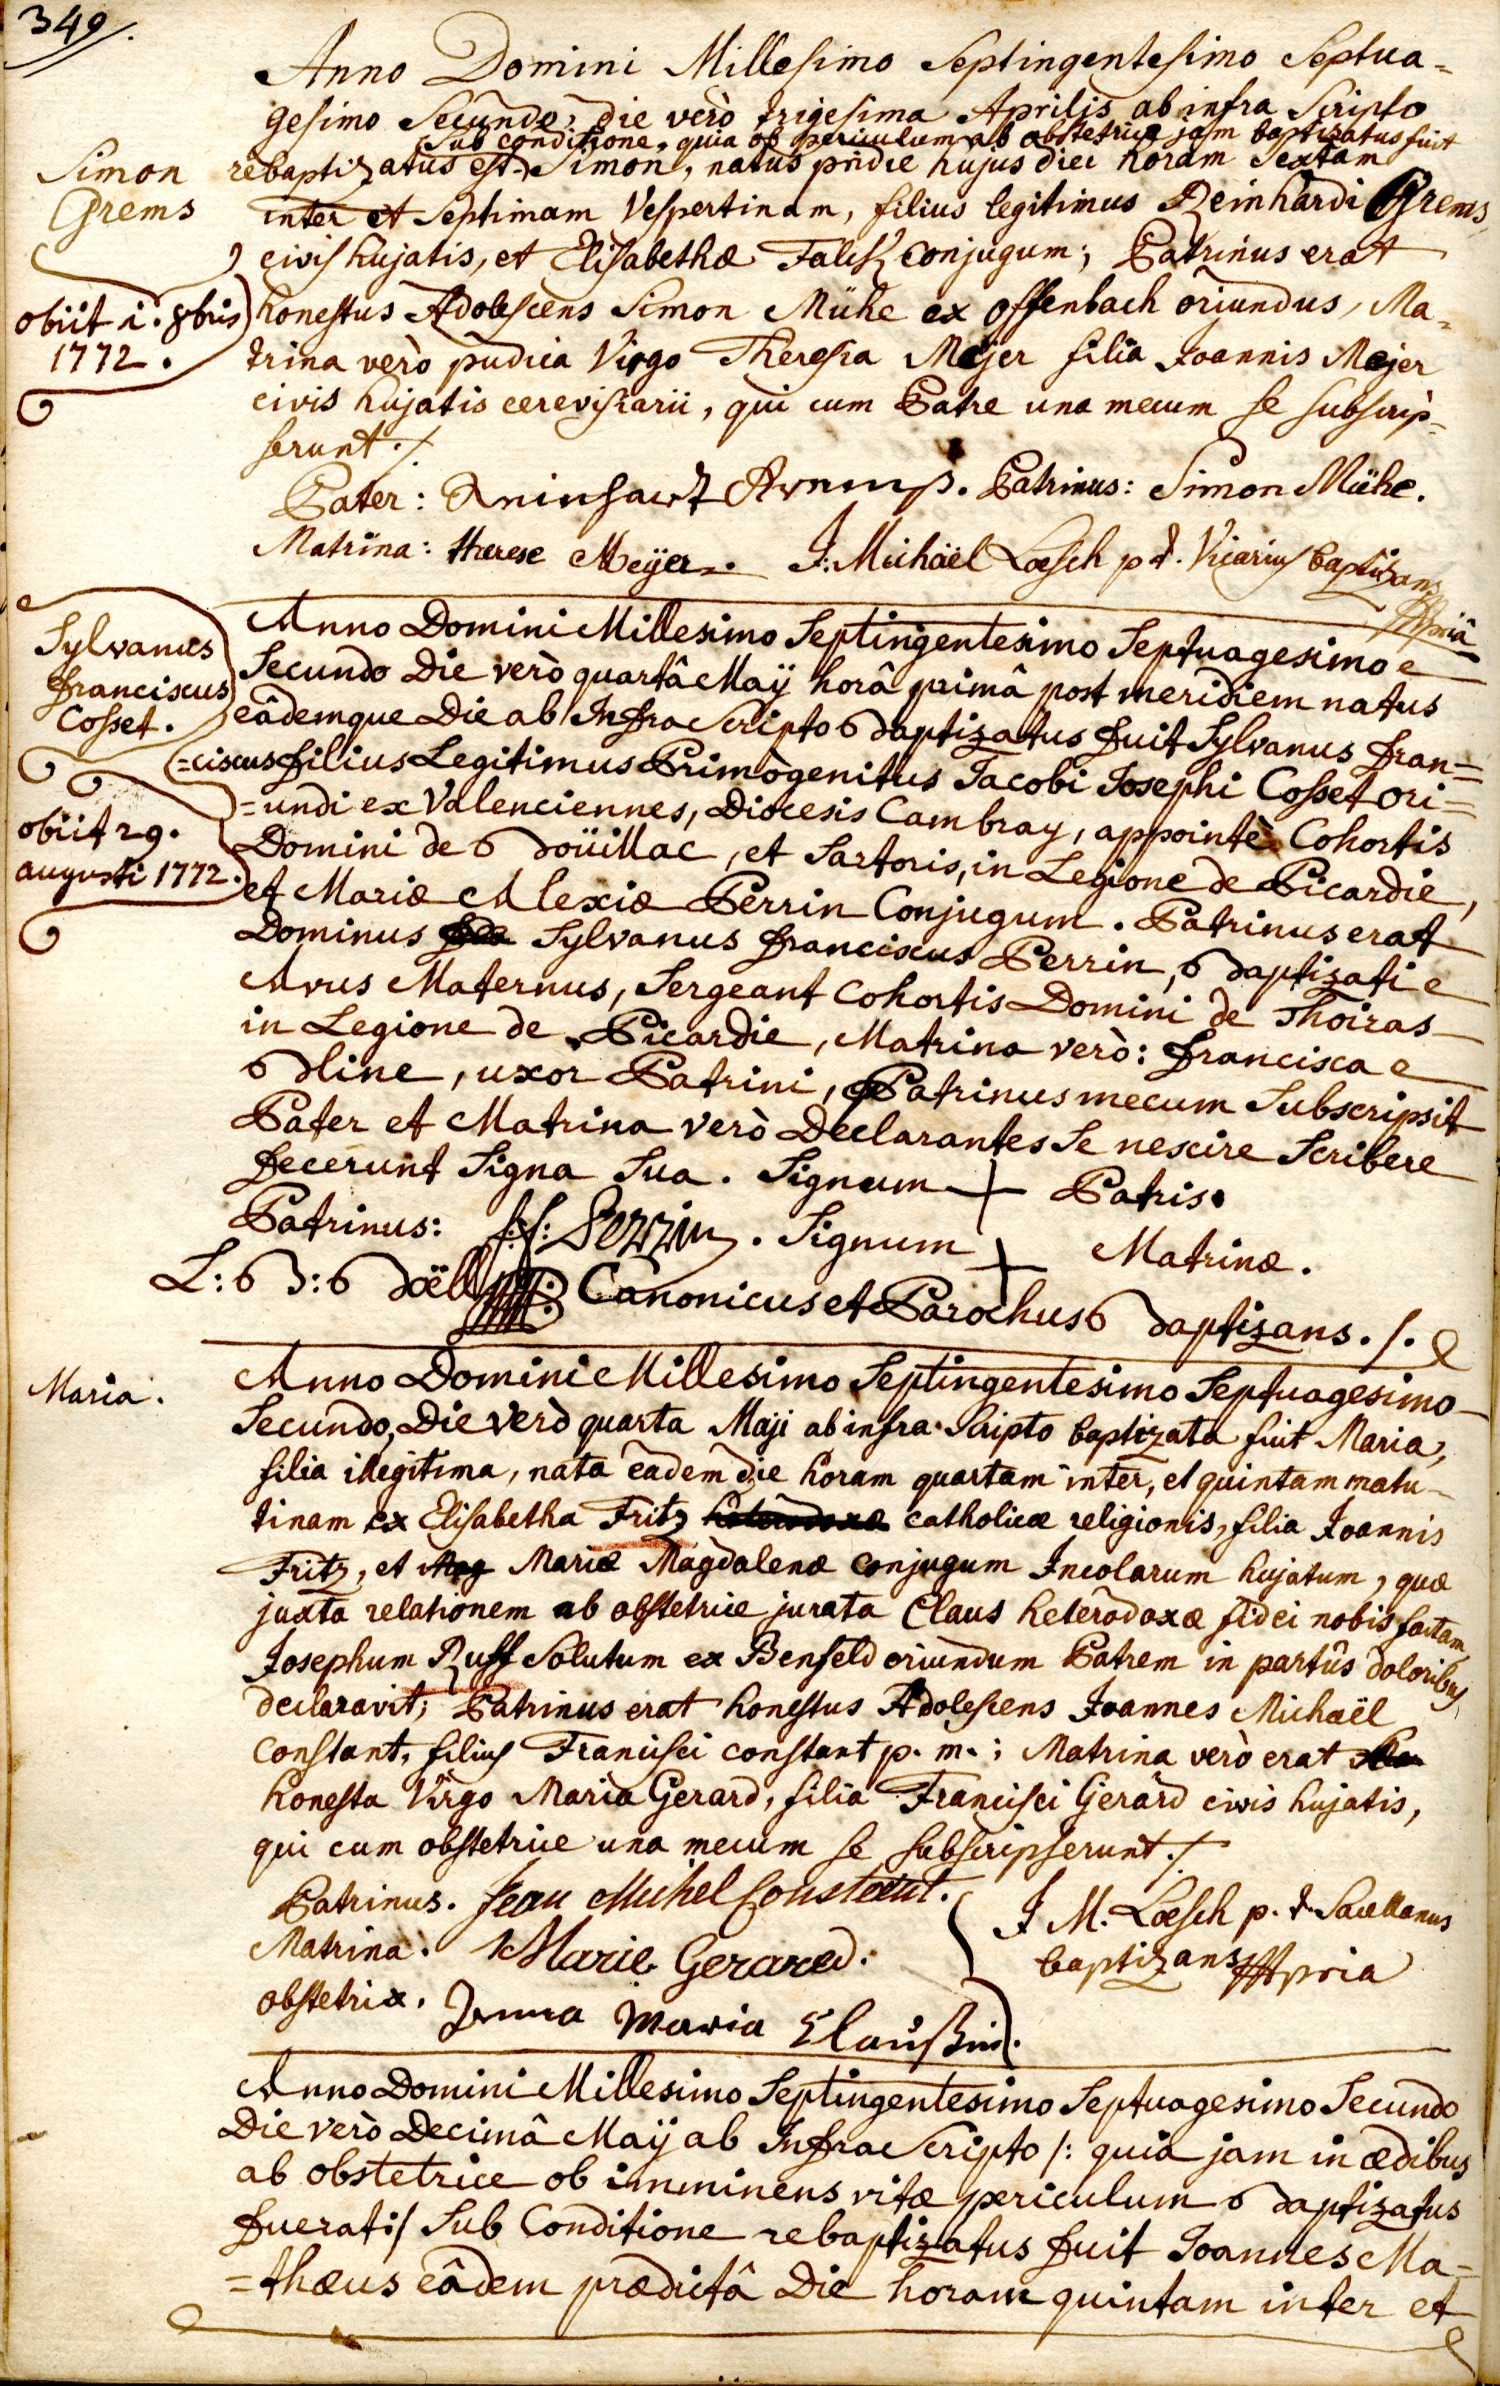 349
Anno Domini Millesimo Septingentesimo Septua-
gesimo Secundo, die verò trigesima Aprilis ab infra Scripto
sub conditione, quia ob periculum ab obstetrice jam baptizatus fuit
Simon
Grems
rebaptizatus est Simon, natus pridie hujus diei horam Sextam
inter et Septimam Vespertinam, filius legitimus Reinhardi Grems,
civis hujatis, et Elisabethæ Falck conjugum; Patrinus erat
obiit 1. 8bris
1772.
honestus Adolescens Simon Mühe ex Offenbach oriundus, Ma-
trina verò pudica Virgo Theresia Mejer filia Joannis Mejer
civis hujatis cerevisiarii, qui cum Patre una mecum se subscrip-
serunt ./.
Pater: Patrinus: Simon Mühe.
Matrina: therese Meÿer. J: Michaël Loesch p.t. Vicarius baptizans
Sylvanus
Franciscus
Cosset.
Anno Domini Millesimo Septingentesimo Septuagesimo
Secundo Die verò quartâ Maÿ horâ primâ post meridiem natus
eâdemque Die ab InfraScripto Baptizatus fuit Sylvanus Fran=
=ciscus filius Legitimus Primògenitus Jacobi Josephi Cosset ori=
=undi ex Valenciennes, Diocesis Cambray, appointè Cohortis
obiit 29.
augusti 1772.
Domini de Boüillac, et Sartoris, in Legione de Picardie,
et Mariæ Alexiæ Perrin Conjugum. Patrinus erat
Dominus Sylvanus Franciscus Perrin, Baptizati
Avus Maternus, Sergeant Cohortis Domini de Thoiras
in Legione de Picardie, Matrina verò: Francisca
Bline, uxor Patrini, Patrinus mecum Subscripsit
Pater et Matrina verò Declarantes Se nescire Scribere
fecerunt Signa Sua. Signum + Patris.
Patrinus: f:f: Perrin. Signum + Matrinæ.
L: B: Boëll Canonicus et Parochus Baptizans ./.
Maria.
Anno Domini Millesimo Septingentesimo Septuagesimo
Secundo, Die verò quarta Maji ab infra Scripto baptizata fuit Maria,
filia illegitima, nata eadem die horam quartam inter, et quintam matu-
tinam ex Elisabetha Fritz heterodoxæ catholicæ religionis, filia Joannis
Fritz, et Mag Mariæ Magdalenæ conjugum Incolarum hujatum, quæ
juxta relationem ab obstetrice jurata Claus heterodoxæ fidei nobis factam
Josephum Ruff solutum ex Benfeld oriundum Patrem in partûs doloribus
declaravit; Patrinus erat honestus Adolescens Joannes Michaël
Constant, filius Francisci constant p. m.; Matrina verò erat
honesta Virgo Maria Gerard, filia Francisci Gerard civis hujatis,
qui cum obstetrice una mecum se subscripserunt ./.
Patrinus. Jean Michel Constant.
Matrina. Marie Gerared.
obstetrix. Anna Maria Claußin.
J M. Loesch p. t. Sacellanus
baptizans mppria
Anno Domini Millesimo Septingentesimo Septuagesimo Secundo
Die verò Decimâ Maÿ ab InfraScripto /: quia jam in ædibus
ab obstetrice ob imminens vitæ periculum Baptizatus
fuerat :/ Sub Conditione rebaptizatus fuit Joannes Ma=
=thæus eâdem prædictâ Die horam quintam inter et